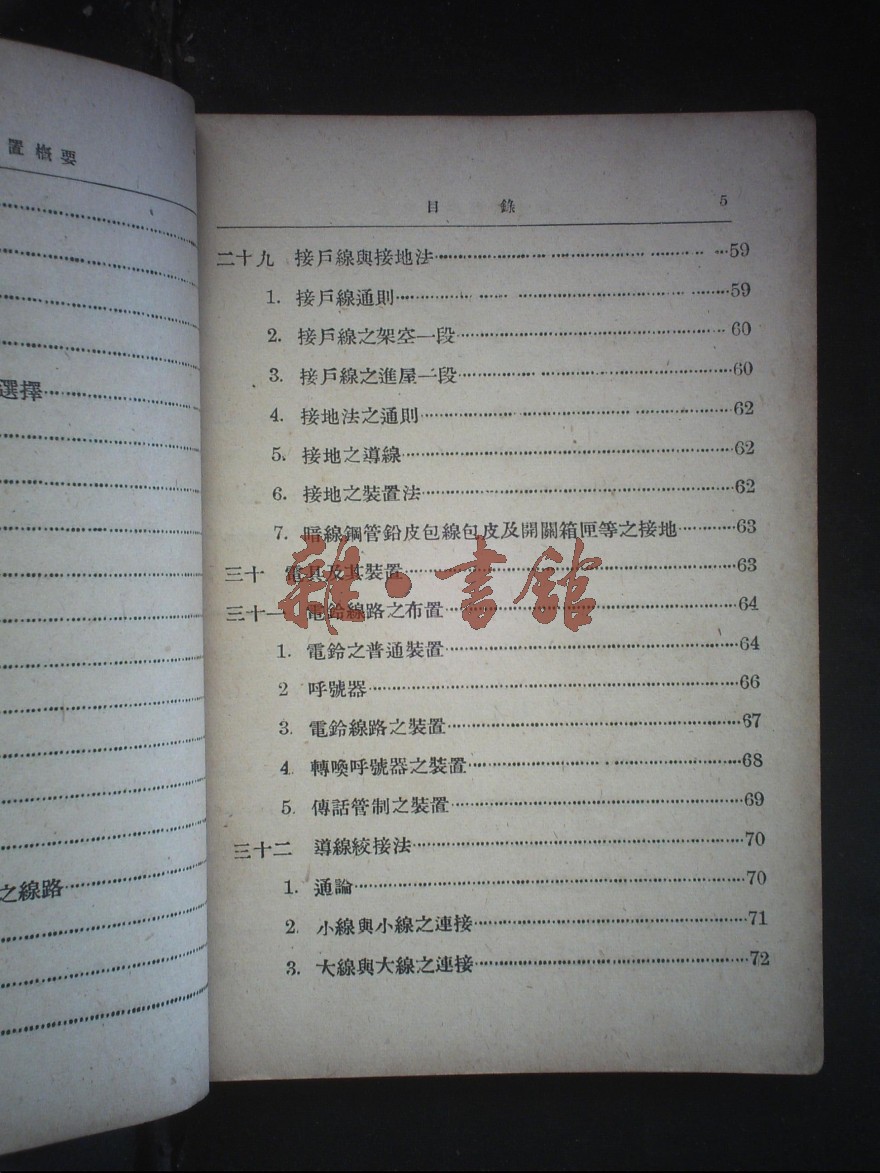 置概要
選擇
之線路
目 錄 5
二十九 接戶線與接地法 59
1. 接戶線通則 59
2. 接戶線之架空一段 60
3. 接戶線之進屋一段 60
4. 接地法之通則 62
5. 接地之導線 62
6. 接地之裝置法 62
7. 暗線鋼管鉛皮包線包皮及開關箱匣等之接地 63
三十 電具及其裝置 63
三十一 電鈴線路之布置 64
1. 電鈴之普通裝置 64
2 呼號器 66
3. 電鈴線路之裝置 67
4. 轉喚呼號器之裝置 68
5. 傳話管制之裝置 69
三十二 導線絞接法 70
1. 通論 70
2. 小線與小線之連接 71
3. 大線與大線之連接 72
雜·書館